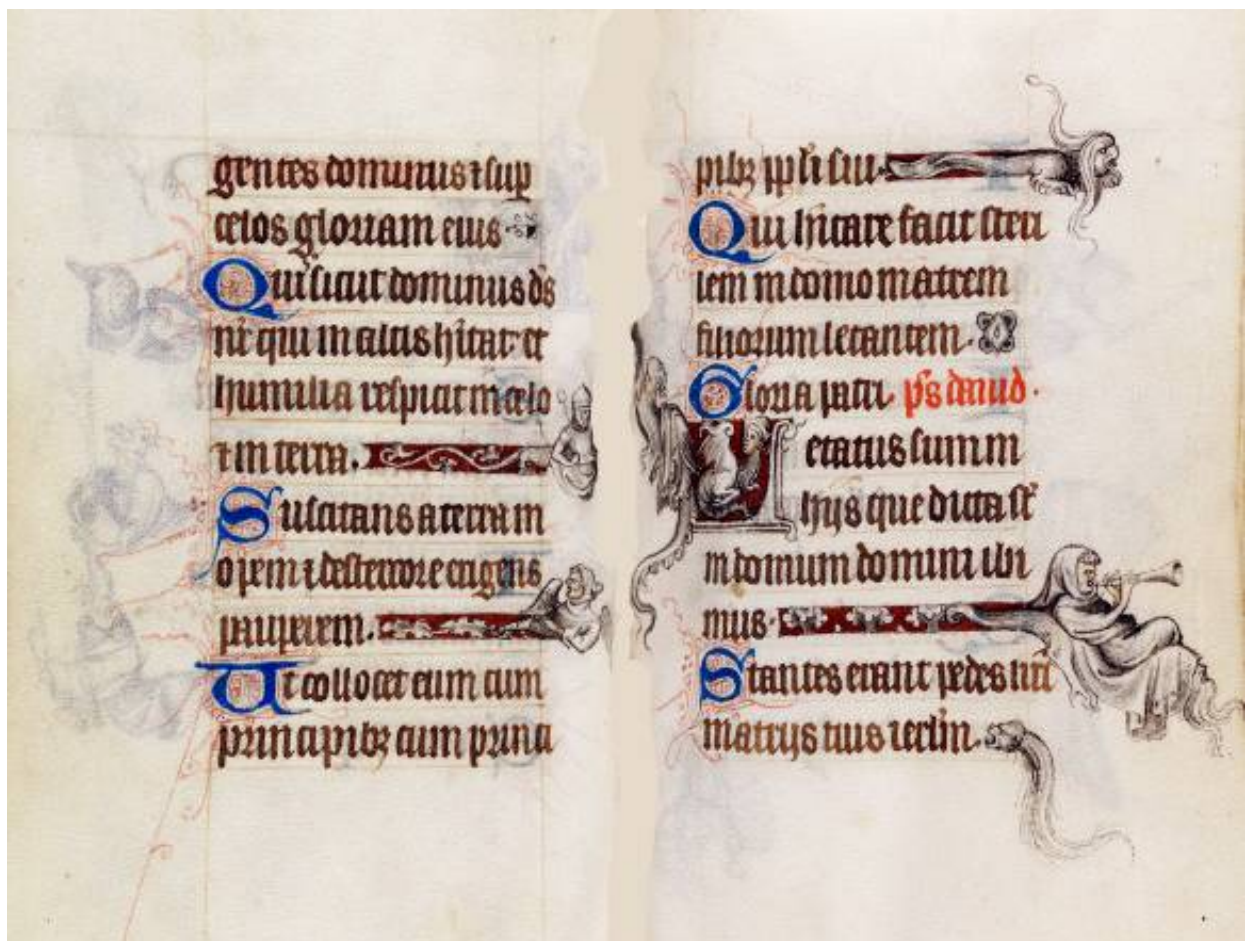 gentes dominus ⁊ sup
celos gloriam eius
Qui sicut dominus ds
nr qui in altis hitat et
humilia respicit in celo
⁊ in terra.
Suscitans a terra in
opem ⁊ de stercore erigens
pauperem.
Ut collocet eum cum
principibꝫ cum princi
pibꝫ ppli sui.
Qui hitare facit steri
lem in domo matrem
filiorum letantem.
Gloria patri. ps dauid.
Letatus sum in
hijs que dicta st
in domum domini ibi
mus.
Stantes erant pedes nri
in atrijs tuis ierlm.